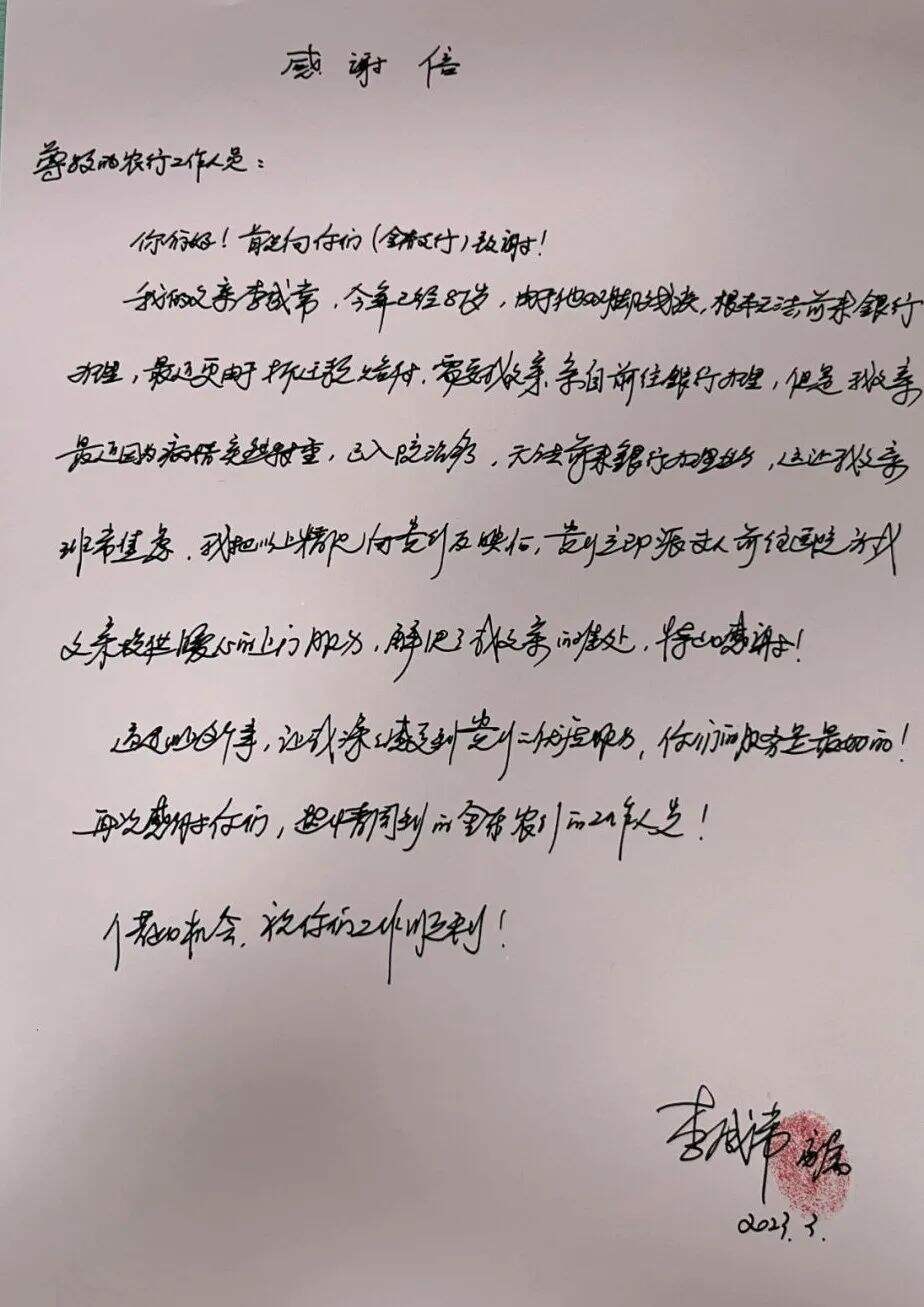 感谢信
尊敬的农行工作人员：
你们好！首先向你们（金东支行）致谢！
我的父亲李成常，今年已经87岁，由于他双脚残疾，根本无法前来银行
办理，最近更由于拆迁款支付，需要我父亲亲自前往银行办理，但是我父亲
最近因为病情突然加重，已入院治疗，无法前来银行办理业务，这让我父亲
非常焦虑，我把以上情况向贵行反映后，贵行立即派专人前往医院为我
父亲提供暖心的上门服务，解决了我父亲的难处，特此感谢！
通过此次事，让我深深感受到贵行的优质服务，你们的服务是最好的！
再次感谢你们，热情周到的金东农行的工作人员！
借此机会，祝你们工作顺利！
李成
2023.3.